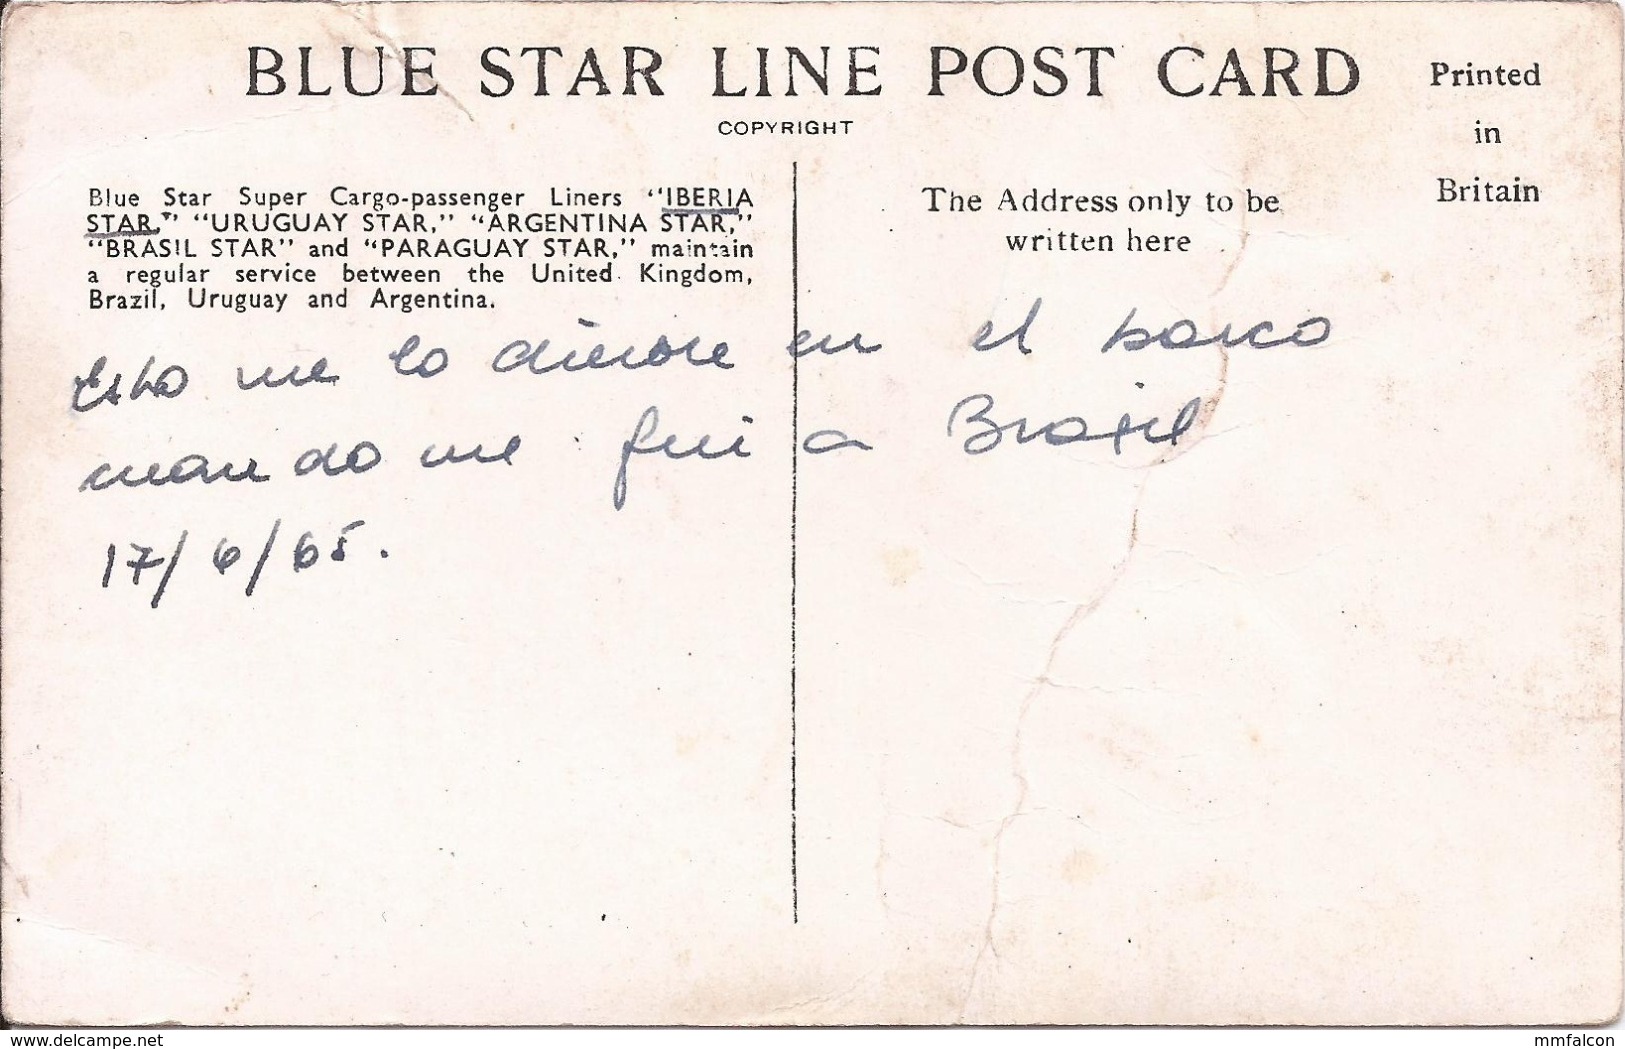 BLUE STAR LINE POST CARD
COPYRIGHT
Printed
in
Britain
Blue Star Super Cargo-passenger Liners "IBERIA
STAR," "URUGUAY STAR," "ARGENTINA STAR,"
"BRASIL STAR" and "PARAGUAY STAR," maintain
a regular service between the United Kingdom,
Brazil, Uruguay and Argentina.
The Address only to be
written here
Esto me lo dieron en el barco
cuando me fui a Brasil
17/6/65.
www.delcampe.net
mmfalcon